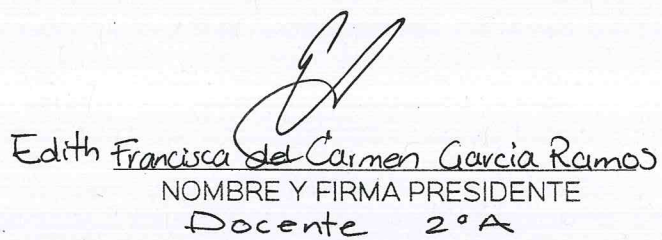 Edith Francisca del Carmen Garcia Ramos
NOMBRE Y FIRMA PRESIDENTE
Docente 2°A